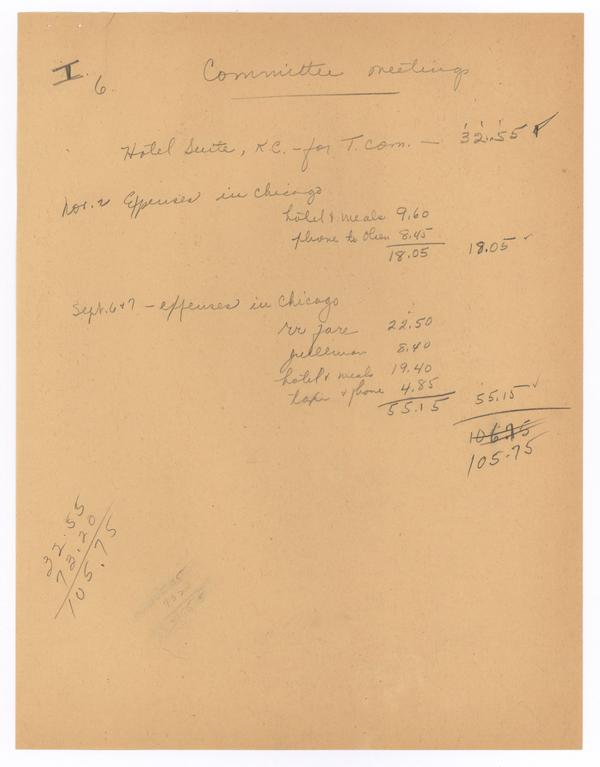 I. 6.
Committee meetings
Hotel Suite, K.C. - for T. Com. — 32.55 ✓
Nov. 2 Expenses in Chicago
hotel & meals 9.60
phone to Olsen 8.45
18.05 18.05 ✓
Sept. 6 & 7 - expenses in Chicago
rr fare 22.50
pullman 8.40
hotel & meals 19.40
taxi & phone 4.85
55.15 55.15 ✓
105.75
32.55
73.20
105.75